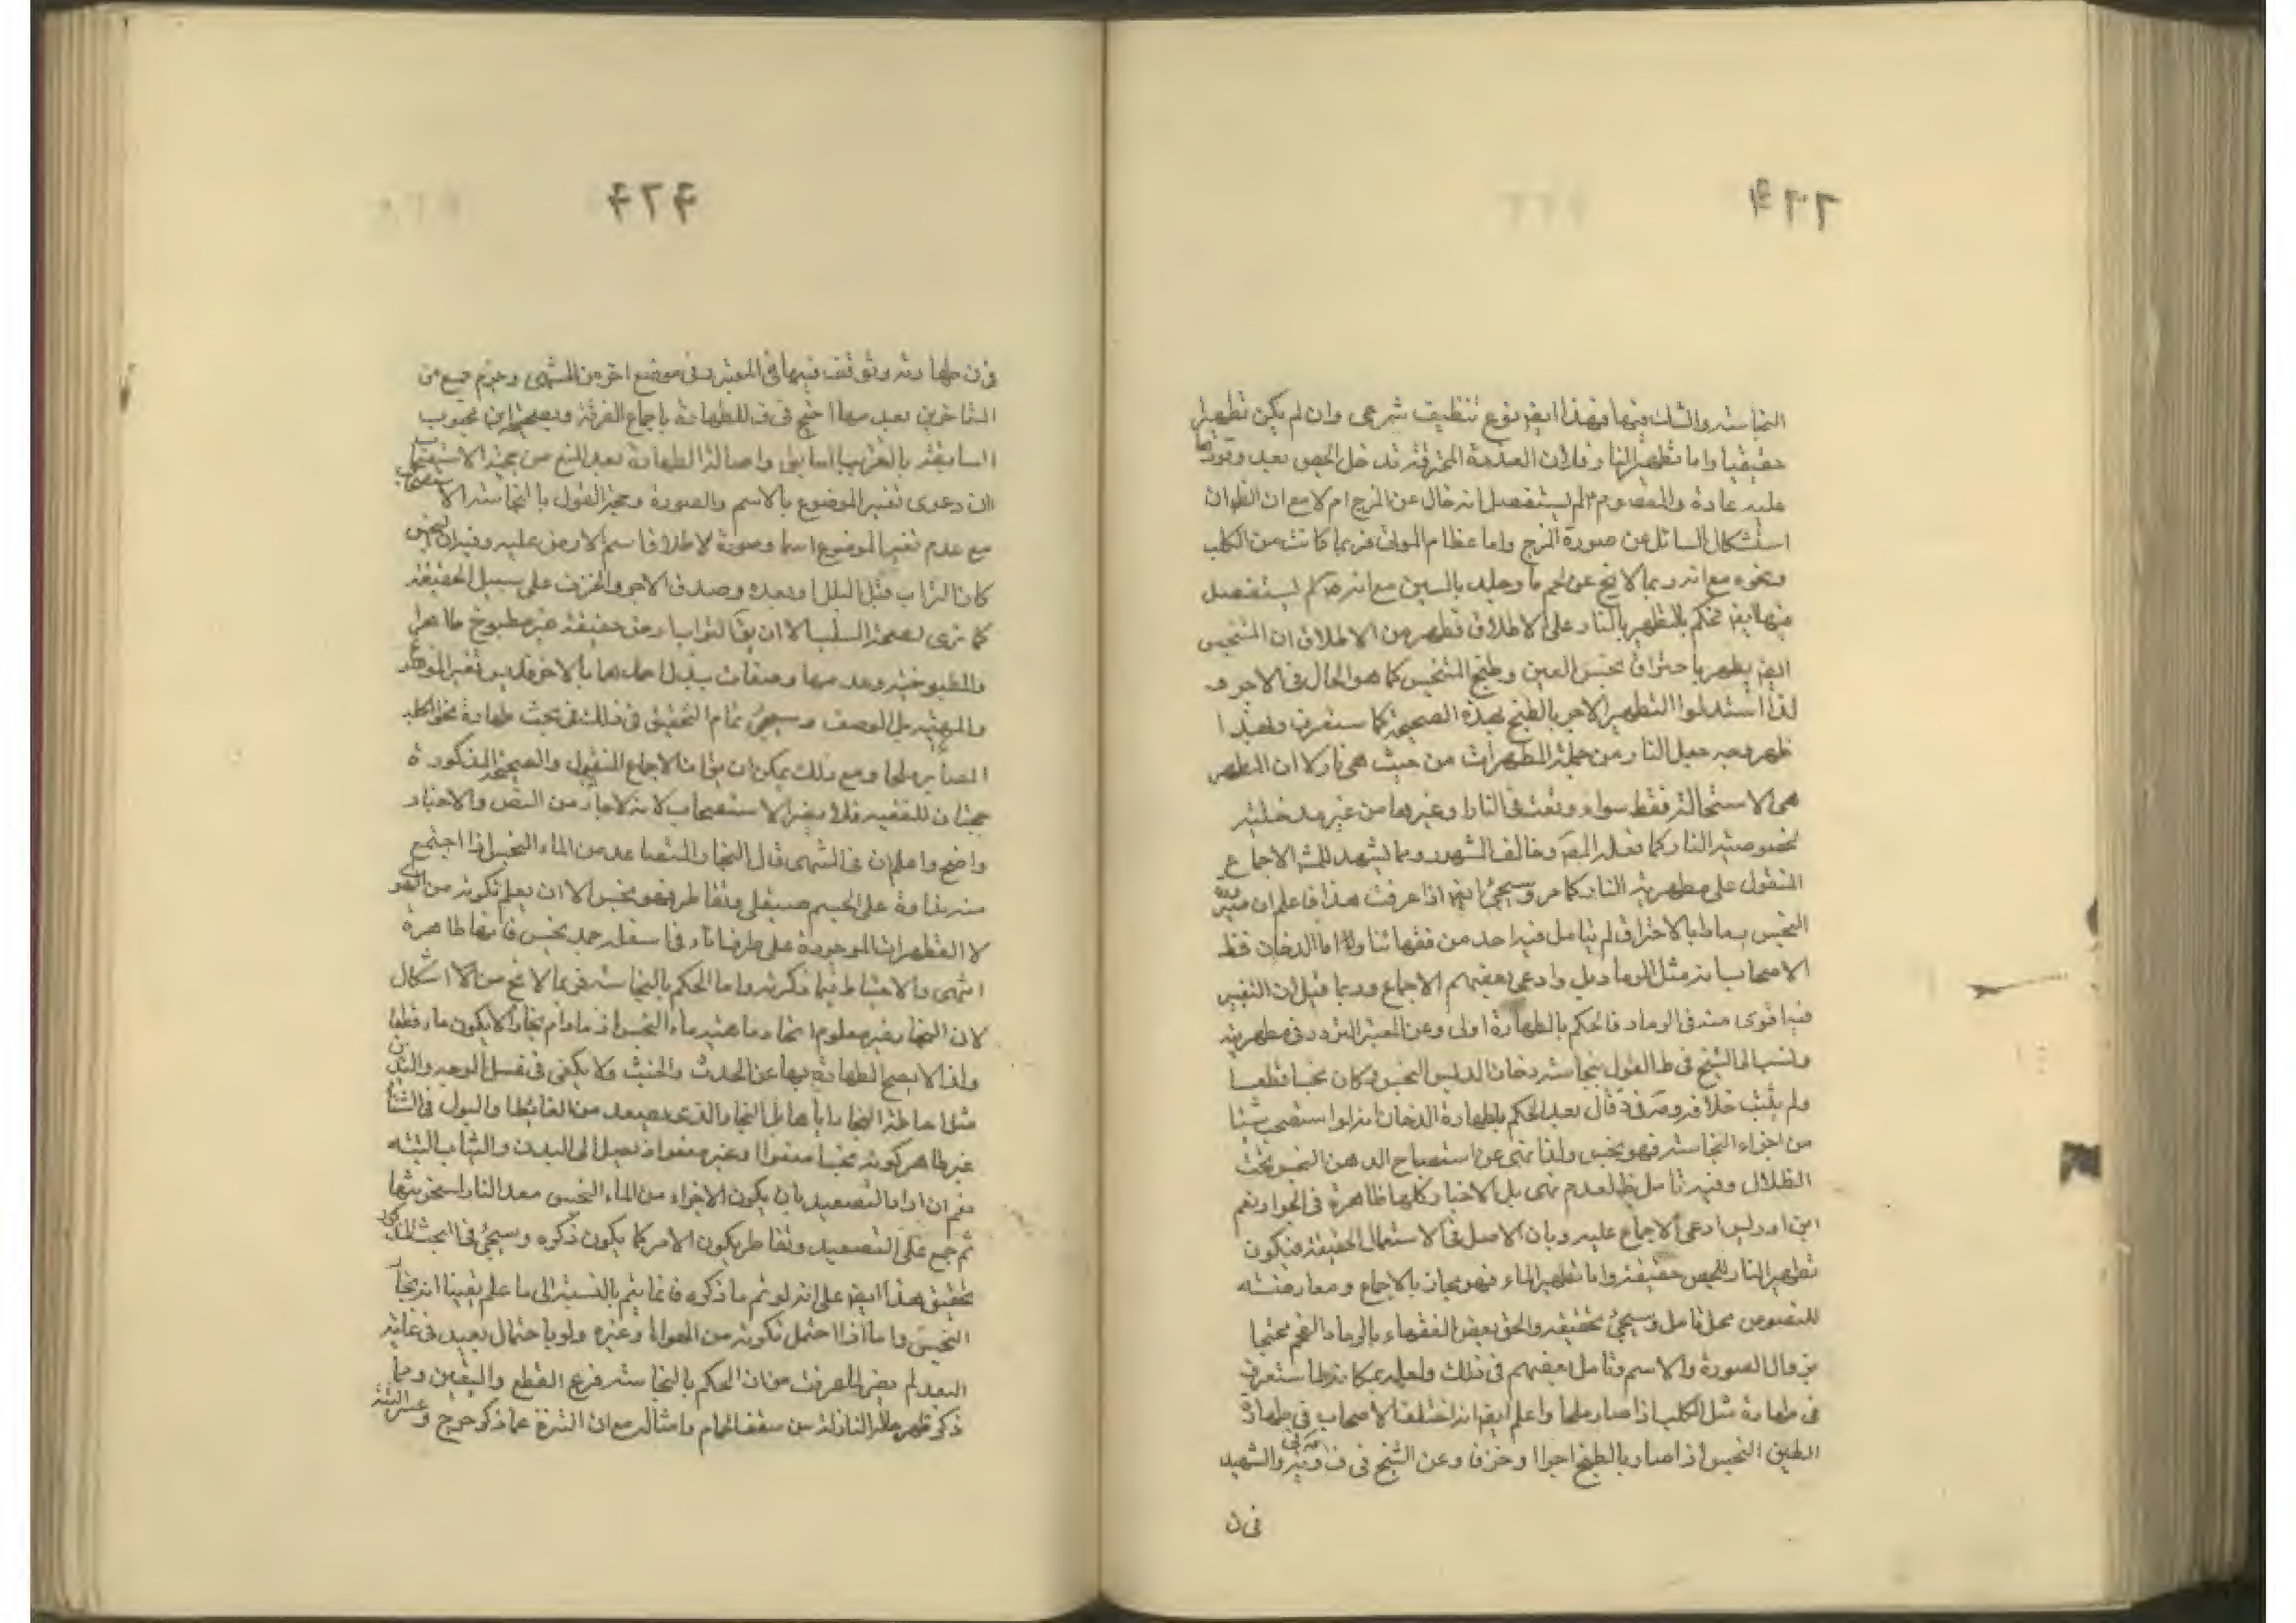 النجاسته والشك فيها فهذا ايضا نوع تنظيف شرعى وان لم يكن تطهيرا
حقيقيا واما تطهير النار فلان العذرة المحترقة تدخل الجص بعد وقودها
عليه عادة والمعصوم لم يستفصل انه خال عن المزج ام لا مع ان الظ ان
استشكال السائل عن صورة المزج واما عظام الموتى فربما كانت من الكلب
ونحوه مع انه ربما لا يخ عن لحم ما وجليد بالسين مع انه لم يستفصل
فيها ايض فحكم بالتطهير بالنار على الاطلاق فظهر من الاطلاق ان المتنجس
ايضا يطهر باحتراق نجس العين وطبخ المتنجس كما هو الحال فى الاجر و
لذا استدلوا التطهير الاجر بالطبخ بهذه الصحيحة كما ستعرف ولهذا
ظهر وجه جعل النار من جملة المطهرات من حيث هى نار لا ان المطهر
هى الاستحالة فقط سواء وقعت فى النار او غيرها من غير مدخلية
لخصوصية النار كما فعله المص وخالف المشهور ومما يشهد للمش الاجماع
المنقول على مطهرية النار كما مر وسيجئ ايضا اذا عرفت هذا فاعلم ان
النجس رمادا بالاحتراق لم يتامل فيه احد من فقهائنا واما الدخان فظ
الاصحاب انه مثل الرماد بل وادعى بعضهم الاجماع وربما قيل ان التغيير
فيه اقوى منه فى الرماد فالحكم بالطهارة اولى وعن المعتبر التردد فى مطهريته
ونسب الى الشيخ فى ط القول بنجاسة دخان الدهن النجس وكان نجسا قطعا
ولم يثبت خلافه قال بعد الحكم بطهارة الدخان انه لو استصحب شيئا
من اجزاء النجاسة فهو نجس ولذا نهى عن استصباح الدهن النجس تحت
الظلال وفيه تامل ظ لعدم نهى بل الاخبار كلها ظاهرة فى الجواز نعم
ابن ادريس ادعى الاجماع عليه وبان الاصل فى الاستعمال الحقيقة فيكون
تطهير النار للجص حقيقة واما تطهير الماء فهو مجاز بالاجماع ومعارضته
للنصوص محل تامل وسيجئ تحقيقه والحق بعض الفقهاء بالرماد الفحم محتجا
بزوال الصورة والاسم وتامل بعضهم فى ذلك ولعله بمكانه لما ستعرف
فى طهارة مثل الكلب اذا صار ملحا واعلم ايضا انه اختلف الاصحاب فى طهارة
الطين النجس اذا صار بالطبخ اجرا او خزفا وعن الشيخ فى ف والشهيد
فى ن
فى ن طهارته وتوقف فيها فى المعتبر وفى موضع اخر من المنتهى وجزم جمع من
المتاخرين بعدمها احتج فى ف للطهارة باجماع الفرقة وبصحيحة ابن محبوب
السابقة بالتقريب السابق واصالة الطهارة بعد المنع من حجية الاستصحاب
الان دعوى تغير الموضوع بالاسم والصورة وحجة القول بالنجاسة الاستصحاب
مع عدم تغير الموضوع اسما وصورة لاطلاق اسم الارض عليه وفيه ان النجس
كان التراب قبل البلل او بعده وصدق الاجر والخزف على سبيل الحقيقة
كما ترى لصحة السلب الا ان يق التراب ارض حقيقة غير مطبوخ ظاهرا
والمطبوخية وعدمها وصفات تبدل احدهما بالاخر فليس تغير الموضوع
والمهية بل الوصف وسيجئ تمام التحقيق فى ذلك فى بحث طهارة نحو الكلب
الصاير ملحا ومع ذلك يمكن ان يق ان الاجماع المنقول والصحيحة المذكورة
حجتان للفقيه فلا يضر الاستصحاب لانه لا جار من النص والاخبار
واضح واعلم ان فى المنتهى قال البخار المتصاعد من الماء النجس اذا اجتمع
منه نداوة على جسم صيقلى وتقاطر فهو نجس الا ان يعلم تكونه من الهواء
لا القطرات الموجودة على طرف اناء فى اسفله جمد نجس فانها طاهرة
انتهى والاحتياط فيما ذكره واما الحكم بالنجاسة فربما لا يخ من الاشكال
لان البخار غير معلوم اتحاد ماهيته ماء النجس اذ ما دام بخارا لا يكون ماء قطعا
ولذا لا يصح الطهارة بها عن الحدث والخبث ولا يكفى فى غسل الوجه واليدين
مثلا احاطة البخار اياها بل البخار الذى يصعد من الغائط والبول فى الشتاء
غير ظاهر كونه نجسا معفوا او غير معفو اذ يصل الى البدن والثياب البتة
نعم ان اراد التصعيد بان يكون الاجزاء من الماء النجس صعد النار بسخونتها
ثم جمع على التصعيد وتقاطر يكون الامر كما يكون ذكره وسيجئ فى البحث المذكور
تحقيق هذا ايضا على انه لو تم ما ذكره فانما يتم بالنسبة الى ما علم يقينا انه بخار
النجس واما اذا احتمل تكونه من الهواء او غيره ولو باحتمال بعيد فى غاية
البعد لم يضر لما عرفت من ان الحكم بالنجاسة فرع القطع واليقين ومما
ذكر ظهر حال النازلة من سقف الحمام وامثاله مع ان التنزه عما ذكر حرج وعسر البتة